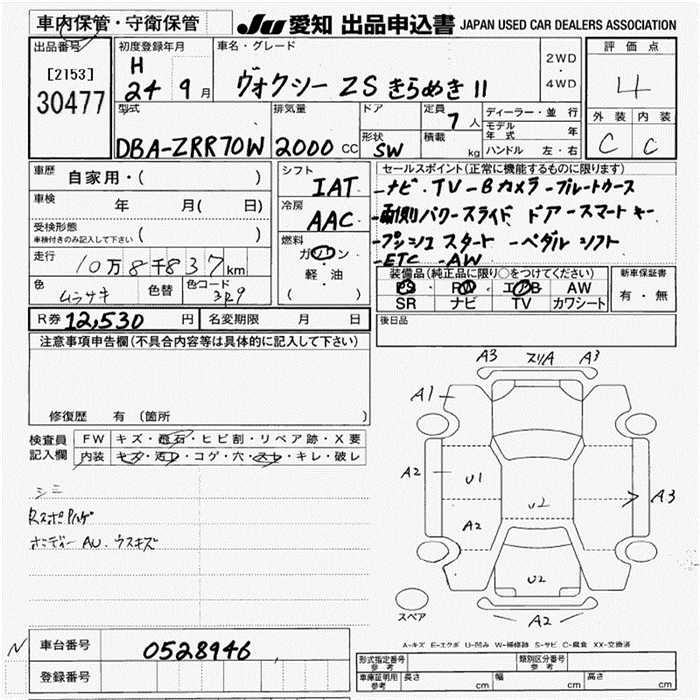 車内保管・守衛保管
JU 愛知 出品申込書 JAPAN USED CAR DEALERS ASSOCIATION
出品番号
[2153]
30477
初度登録年月
H
24 9月
車名・グレード
ヴォクシー ZS きらめきII
2WD
・
4WD
評価点
4
外装 内装
C C
型式
DBA-ZRR70W
排気量
2000 CC
ドア
形状
SW
定員
7人
積載
kg
ディーラー・並行
モデル年式 年
ハンドル 左・右
車歴
自家用・( )
車検
年 月( 日)
受検形態
車検付きのみ記入して下さい ( )
走行
10万8千837km
色
ムラサキ
色替
色コード
3P9
シフト
IAT
冷房
AAC
燃料
ガソリン
・
軽油
( )
セールスポイント(正常に機能するものに限ります)
-ナビ・TV-Bカメラ-ブルートゥース
-両側パワースライドドア-スマートキー
-プッシュスタート -ペダルシフト
-ETC -AW
装備品(純正品に限り○をつけてください)
PS PW エアB AW
SR ナビ TV カワシート
新車保証書
有・無
R券 12,530 円
名変期限 月 日
後日品
注意事項申告欄(不具合内容等は具体的に記入して下さい)
修復歴 有(箇所
検査員
記入欄
FW キズ・飛石・ヒビ割・リペア跡・X要
内装 キズ・汚レ・コゲ・穴・スレ・キレ・破レ
シミ
ボディー AU.ウスキズ
A3 スリA A3
A1
A2
U1
U2
A3
A2
U2
A2
スペア
A-キズ E-エクボ U-凹み W-補修跡 S-サビ C-腐食 XX-交換済
N
車台番号
0528946
登録番号
形式指定番号
参考
類別区分番号
参考
車庫証明用
参考
長さ cm
幅 cm
高さ cm